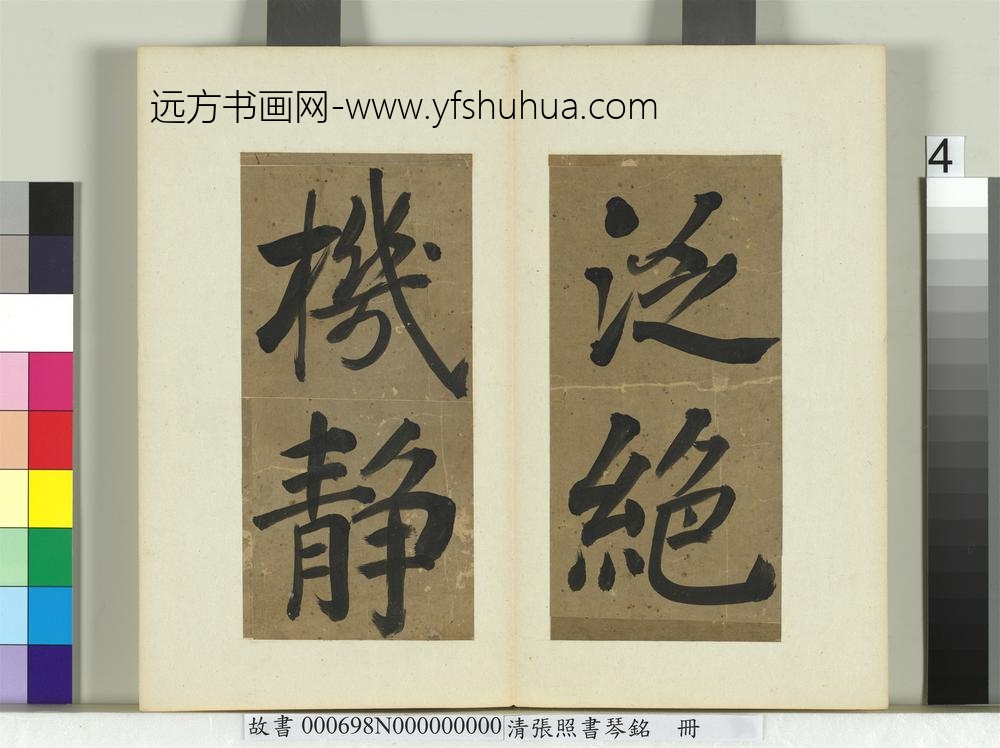 远方书画网-www.yfshuhua.com
4
泛絕
機静
故書 000698N000000000 清張照書琴銘 冊